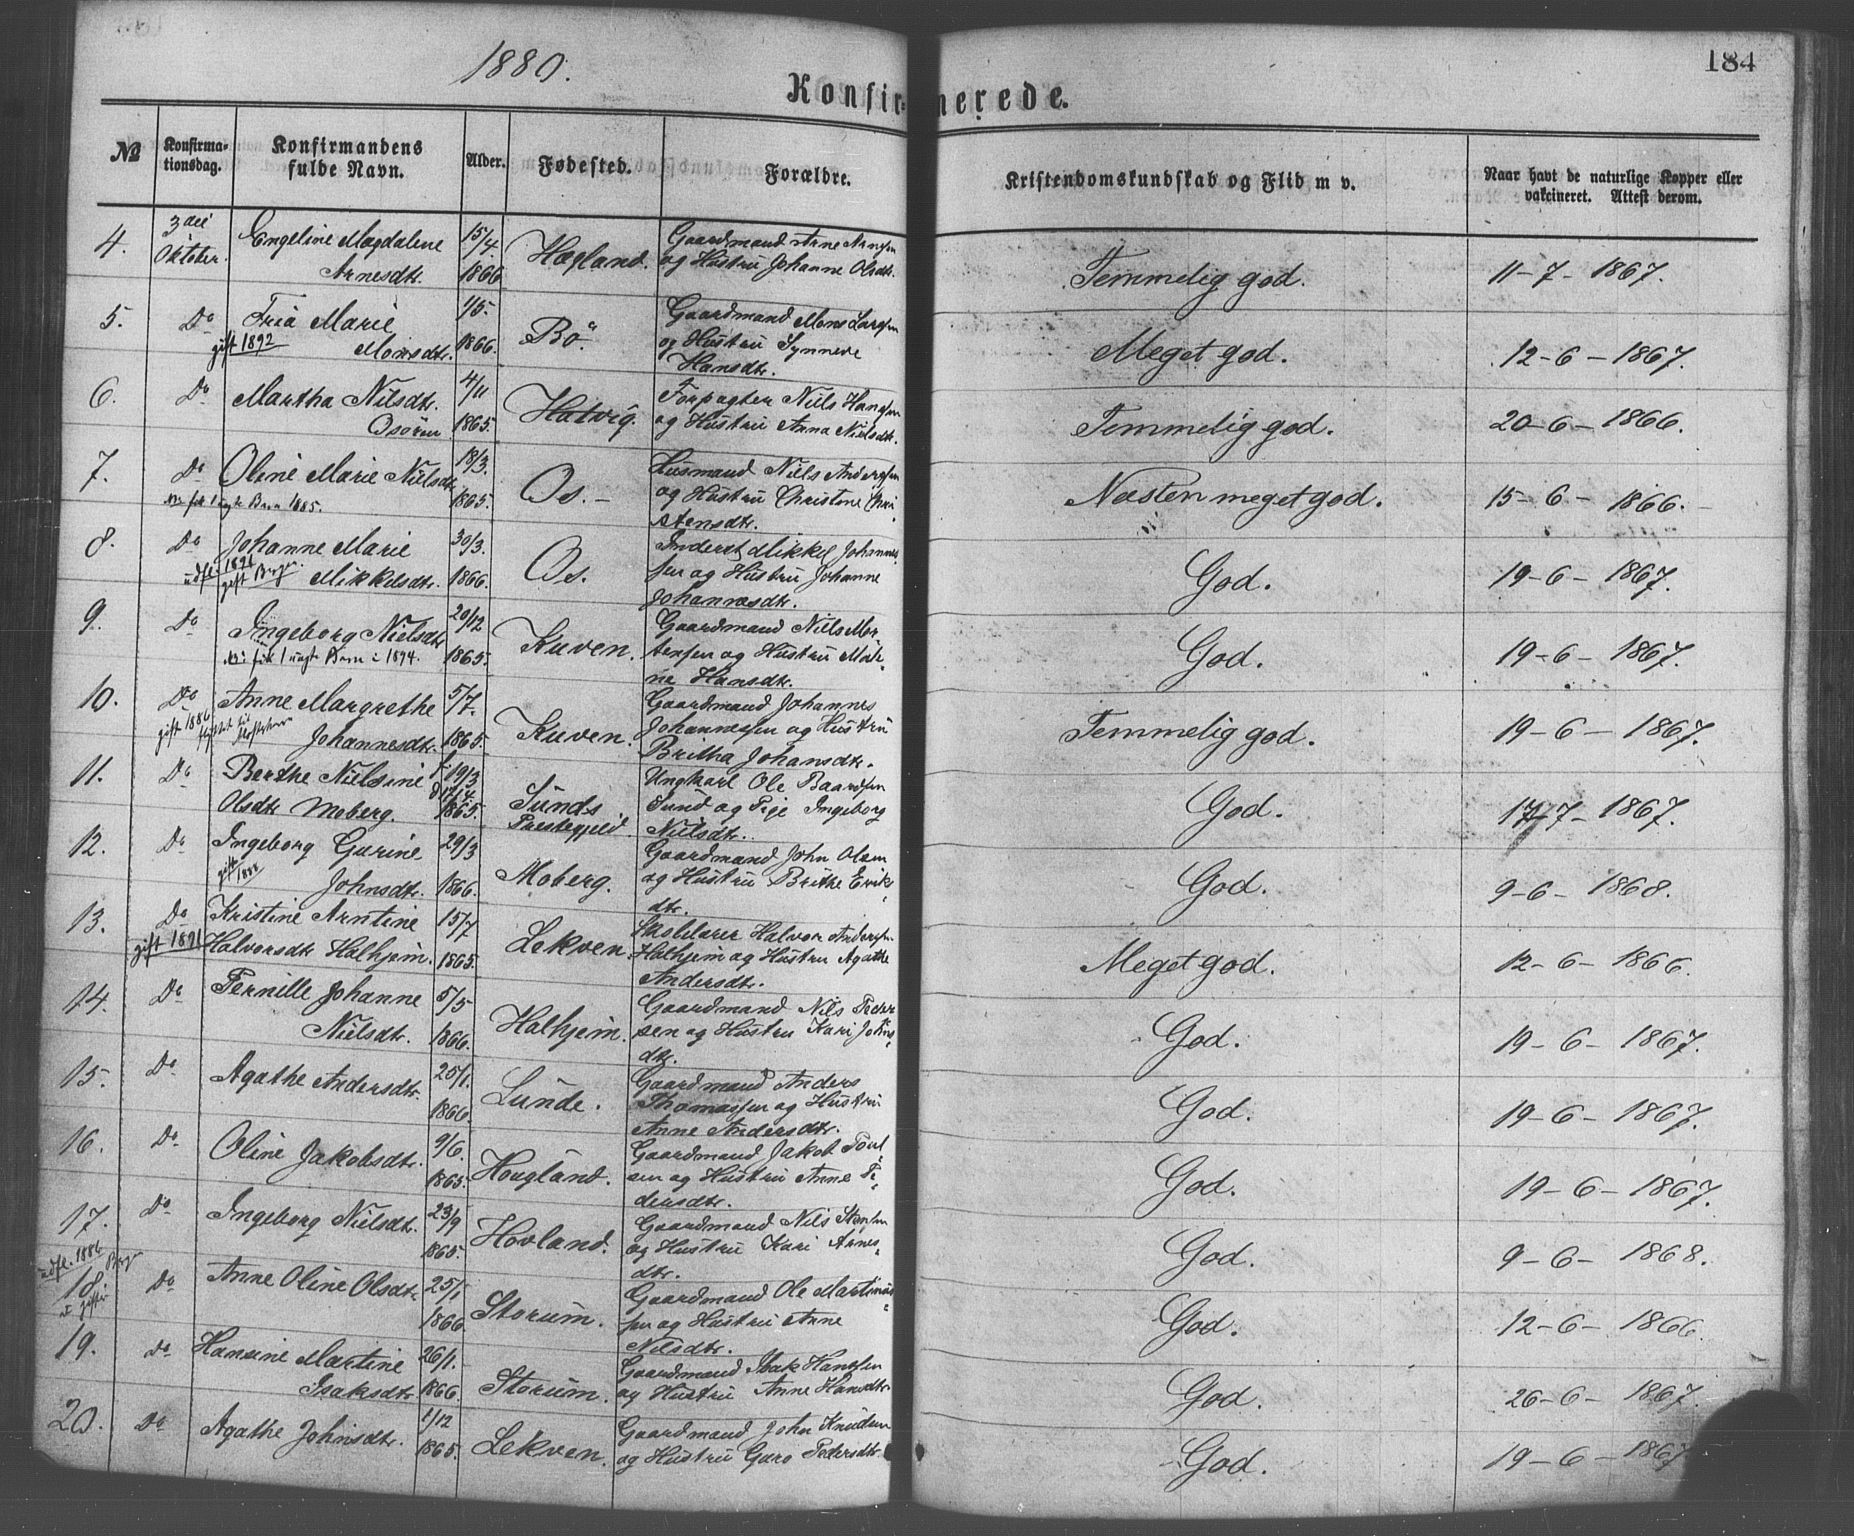 1880.
184
Konfirmerede.
№ Konfirma-tionsdag. Konfirmandens fulde Navn. Alder. Fødested. Forældre. Kristendomskundskab og Flid m v. Naar havt de naturlige Kopper eller vakcineret. Attest derom.
4. 3die Oktober. Engeline Magdalene Arnesdtr. 15/4 1866 Hægland. Gaardmand Arne Arnesen og Hustru Johanne Olsdtr. Temmelig god. 11-7-1867.
5. Do Marie Monsdtr. gift 1892 1/5. 1866. Bø. Gaardmand Mons Larsen og Hustru Synneve Hansdtr. Meget god. 12-6-1867.
6. Do Martha Nilsdtr. Osøren 4/11 1865. Hatvig. Forpagter Niels Hansen og Hustru Anna Nielsdtr. Temmelig god. 20-6-1866.
7. Do Oline Marie Nielsdtr. 18/3. 1865. Os. Husmand Niels Andersen og Hustru Christine Christensdtr. Næsten meget god. 15-6-1866.
8. Do Johanne Marie Mikkelsdtr. 30/3. 1866. Os. Inderst Mikkel Johannessen og Hustru Johanne Johannesdtr. God. 19-6-1867.
9. Do Ingeborg Nielsdtr 20/12 1865. Kuven. Gaardmand Niels Mortensen og Hustru Malene Hansdtr. God. 19-6-1867.
10. Do Anne Margrethe Johannesdtr. gift 1886 5/7. 1865. Kuven. Gaardmand Johannes Johannessen og Hustru Britha Johansdtr. Temmelig god. 19-6-1867.
11. Do Berthe Nielsine Olsdtr Moberg. f. 19/3 1865. Sunds Præstegjeld. Ungkarl Ole Baardsen Sund og Pige Ingeborg Nielsdtr. God. 17-7-1867.
12. Do Ingeborg Gurine Johnsdtr. gift 1888 29/3 1866. Moberg. Gaardmand John Olsen og Hustru Brithe Eriksdtr. God. 9-6-1868.
13. Do gift 1891 Kristine Arntine Halvorsdtr Halhjem. 15/7 1865. Lekven. Skolelærer Halvor Andersen Halhjem og Hustru Agathe Andersdtr. Meget god. 12-6-1866.
14. Do Pernille Johanne Nielsdtr. 5/5 1866. Halhjem. Gaardmand Nils Pedersen og Hustru Kari Johnsdtr. God. 19-6-1867.
15. Do Agathe Andersdtr. 25/1. 1866. Lunde. Gaardmand Anders Thomassen og Hustru Anne Andersdtr. God. 19-6-1867.
16. Do Oline Jakobsdtr. 9/6. 1865. Hougland. Gaardmand Jakob Poulsen og Hustru Anne Pedersdtr. God. 19-6-1867.
17. Do Ingeborg Nielsdtr. 23/9 1865. Hovland. Gaardmand Nils og Hustru Kari Arnesdtr. God. 9-6-1868.
udfl. 1886
18. Do Anne Oline Olsdtr 25/1 1866. Storum. Gaardmand Ole Martinussen og Hustru Anne Nilsdtr. God. 12-6-1866.
19. Do Hansine Martine Isaksdtr 26/1. 1866. Storum. Gaardmand Isak Hansen og Hustru Anne Hansdtr God. 26-6-1867.
20. Do Agathe Johnsdtr. 1/12 1865. Lekven. Gaardmand John Knudsen og Hustru Guro Pedersdtr. God. 19-6-1867